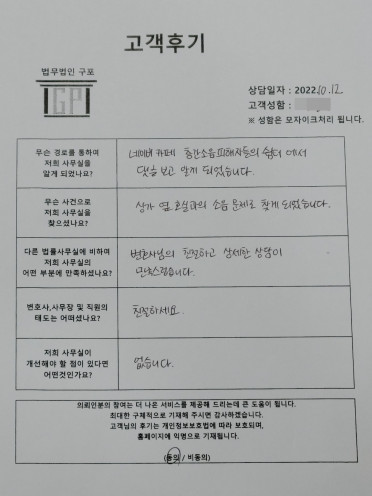 고객후기
법무법인 구포
GP
상담일자 : 2022.10.12.
고객성함 :
※ 성함은 모자이크처리 됩니다.
무슨 경로를 통하여
저희 사무실을
알게 되었나요?
네이버 카페 층간소음피해자들의 쉼터에서
댓글 보고 알게 되었습니다.
무슨 사건으로
저희 사무실을
찾으셨나요?
상가 옆 호실과의 소음 문제로 찾게 되었습니다.
다른 법률사무실에 비하여
저희 사무실의
어떤 부분에 만족하셨나요?
변호사님의 친절하고 상세한 상담이
만족스럽습니다.
변호사,사무장 및 직원의
태도는 어떠셨나요?
친절하세요.
저희 사무실이
개선해야 할 점이 있다면
어떤것인가요?
없습니다.
의뢰인분의 참여는 더 나은 서비스를 제공해 드리는데 큰 도움이 됩니다.
최대한 구체적으로 기재해 주시면 감사하겠습니다.
고객님의 후기는 개인정보보호법에 따라 보호되며,
홈페이지에 익명으로 기재됩니다.
(동의 / 비동의)